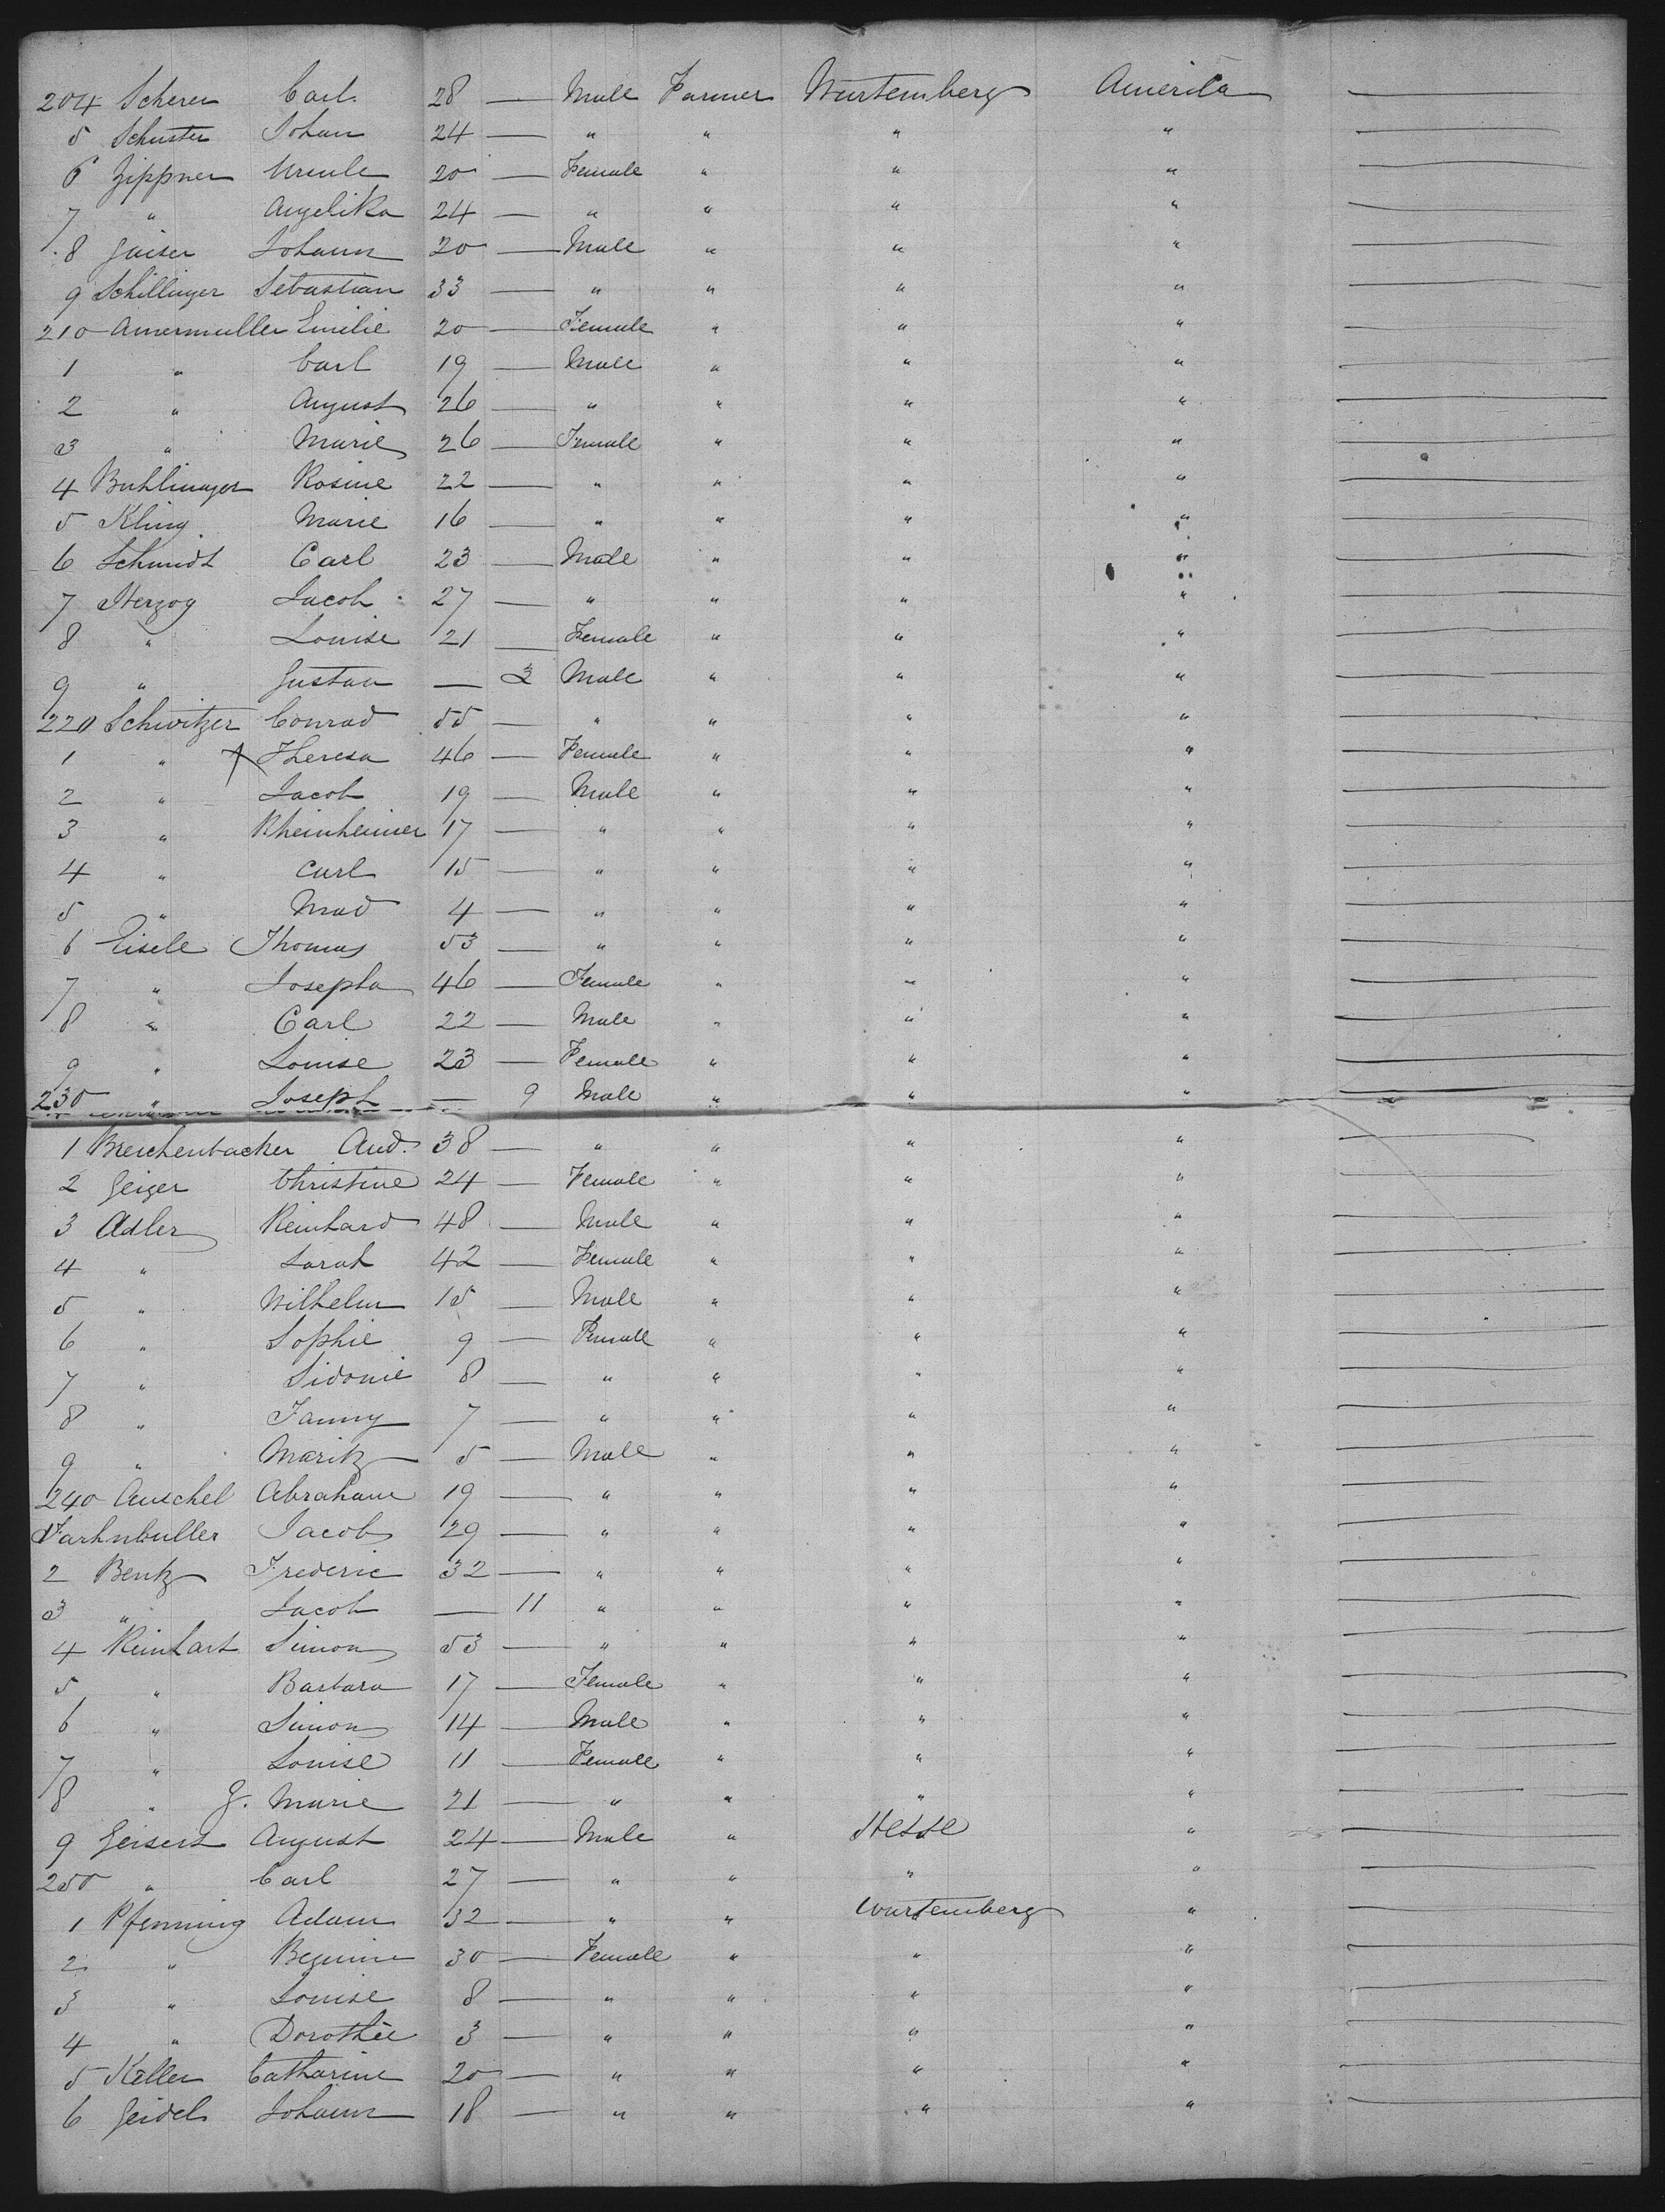 204 Scherer Carl. 28 — Male Farmer Wurtemberg America —
5 Schuster Johan 24 — " " " " —
6 Zippner Ursule 20 — Female " " " —
7 " Angelika 24 — " " " " —
8 Gaiser Johann 20 — Male " " " —
9 Schillinger Sebastian 33 — " " " " —
210 Amermuller Emilie 20 — Female " " " —
1 " Carl 19 — Male " " " —
2 " August 26 — " " " " —
3 " Marie 26 — Female " " " —
4 Buhlinger Rosine 22 — " " " " —
5 Kling Marie 16 — " " " " —
6 Schmidt Carl 23 — Male " " " —
7 Herzog Jacob 27 — " " " " —
8 " Louise 21 — Female " " " —
9 " Gustav — 3 Male " " " —
220 Schwitzer Conrad 55 — " " " " —
1 " Theresa 46 — Female " " " —
2 " Jacob 19 — Male " " " —
3 " Rheinheimer 17 — " " " " —
4 " Carl 15 — " " " " —
5 " Mad 4 — " " " " —
6 Eisele Thomas 53 — " " " " —
7 " Josepha 46 — Female " " " —
8 " Carl 22 — Male " " " —
9 " Louise 23 — Female " " " —
230 " Joseph — 9 Male " " " —
1 Breichenbacher And. 38 — " " " " —
2 Geiger Christine 24 — Female " " " —
3 Adler Reinhard 48 — Male " " " —
4 " Sarah 42 — Female " " " —
5 " Wilhelm 15 — Male " " " —
6 " Sophie 9 — Female " " " —
7 " Sidonie 8 — " " " " —
8 " Fanny 7 — " " " " —
9 " Maritz 5 — Male " " " —
240 Auschel Abraham 19 — " " " " —
Farhnbuller Jacob 29 — " " " " —
2 Bentz Frederic 32 — " " " " —
3 " Jacob — 11 " " " " —
4 Reinhart Simon 53 — " " " " —
5 " Barbara 17 — Female " " " —
6 " Simon 14 — Male " " " —
7 " Louise 11 — Female " " " —
8 " G. Marie 21 — " " " " —
9 Geisert August 24 — Male " Hesse " —
250 " Carl 27 — " " " " —
1 Pfenning Adam 32 — " " Wurtemberg " —
2 " 30 — Female " " " —
3 " Louise 8 — " " " " —
4 " Dorothee 3 — " " " " —
5 Keller Catharine 20 — " " " " —
6 Geidel Johann 18 — " " " " —